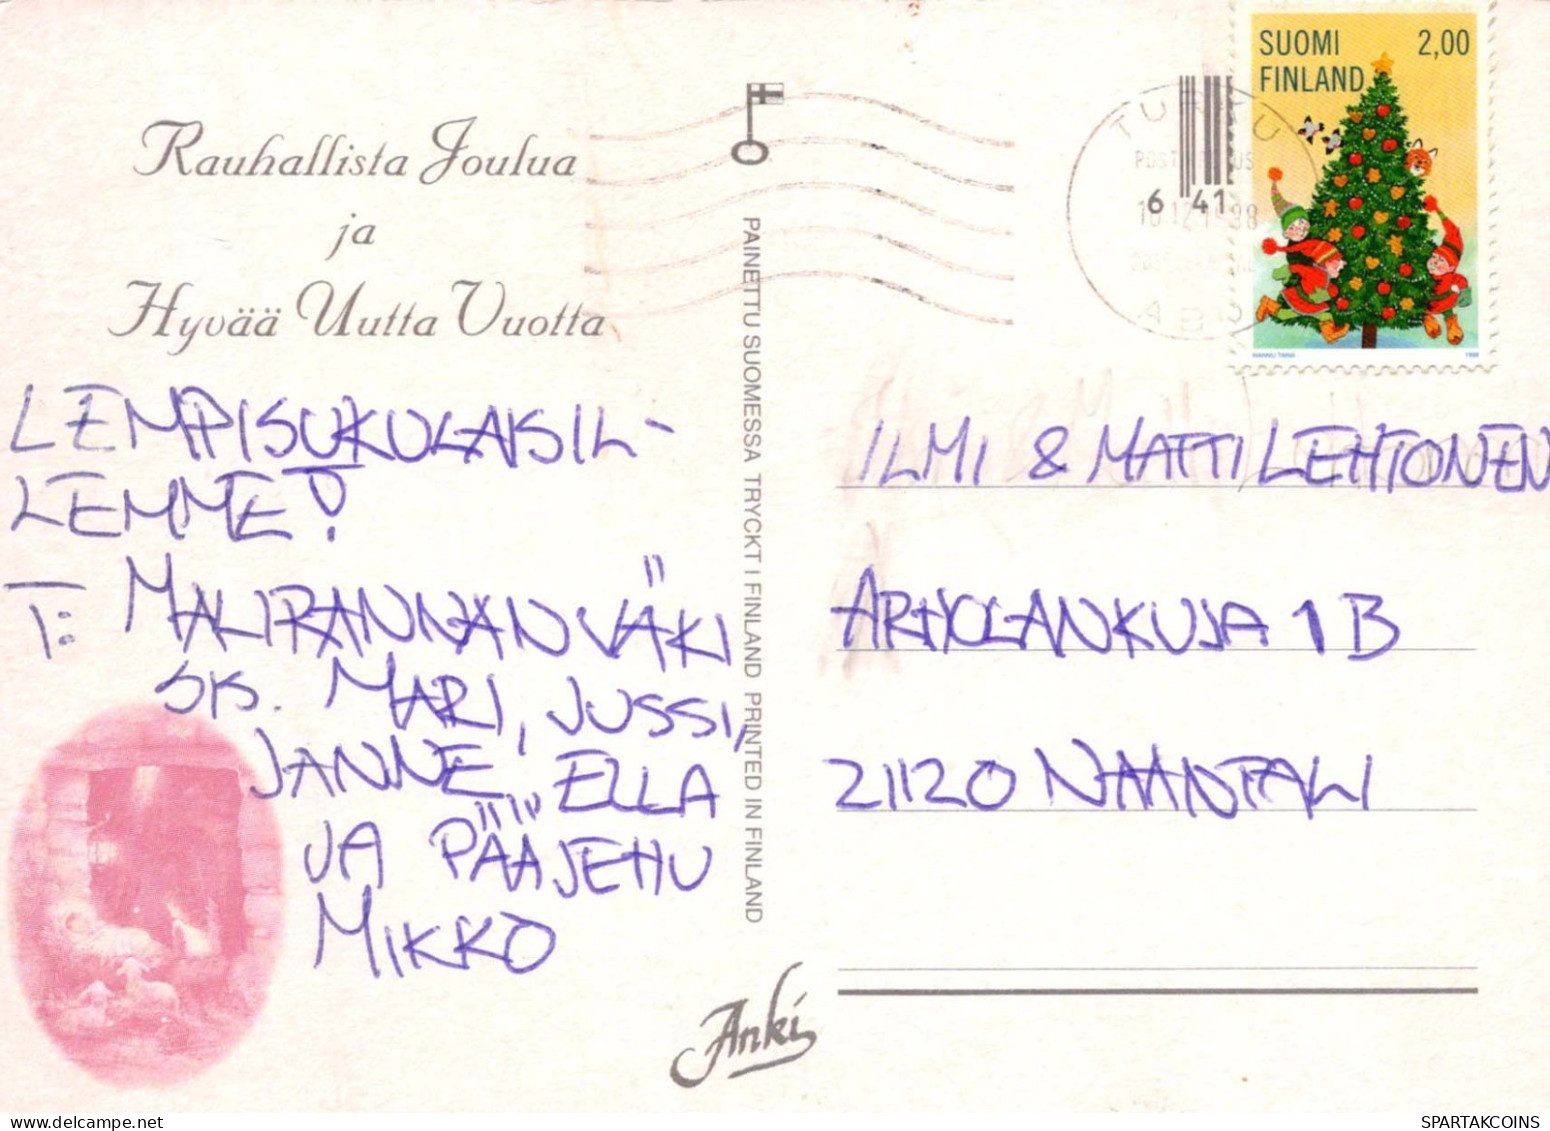 Rauhallista Joulua
ja
Hyvää Uutta Vuotta
LEMPISUKULAISIL-
LEMME!
T: MALIRANNAN VÄKI
SK. MARI, JUSSI,
JANNE, ELLA
JA PÄÄJEHU
MIKKO
PAINETTU SUOMESSA TRYCKT I FINLAND PRINTED IN FINLAND
Anki
SUOMI 2,00
FINLAND
HANNU TAINA 1998
TURKU
6 41
ILMI & MATTI LEHTONEN
ARHOLANKUJA 1 B
21120 NAANTALI
SPARTAKCOINS